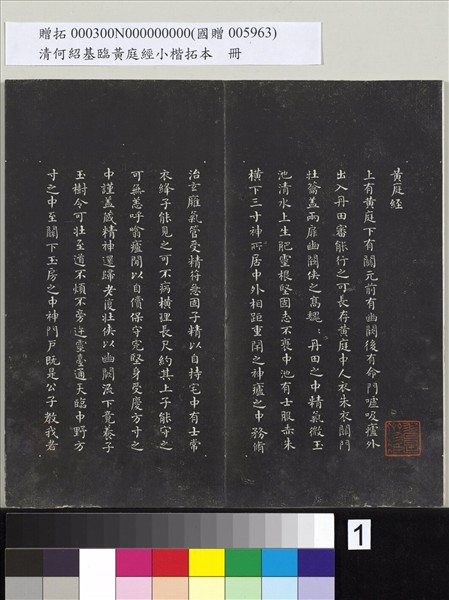 贈拓 000300N000000000(國贈 005963)
清何紹基臨黃庭經小楷拓本 冊
黃庭経
上有黃庭下有關元前有幽闕後有命門噓吸廬外
出入丹田審能行之可長存黃庭中人衣朱衣關門
壯籥蓋兩扉幽闕俠之高巍：丹田之中精氣微玉
池清水上生肥靈根堅固志不衰中池有士服赤朱
橫下三寸神所居中外相距重閉之神廬之中務脩
治玄廱氣管受精符急固子精以自持宅中有士常
衣絳子能見之可不病橫理長尺約其上子能守之
可無恙呼噏廬間以自償保守完堅身受慶方寸之
中謹蓋藏精神還歸老復壯俠以幽闕流下竟養子
玉樹令可壯至道不煩不旁迕靈臺通天臨中野方
寸之中至關下玉房之中神門戶既是公子教我者
1